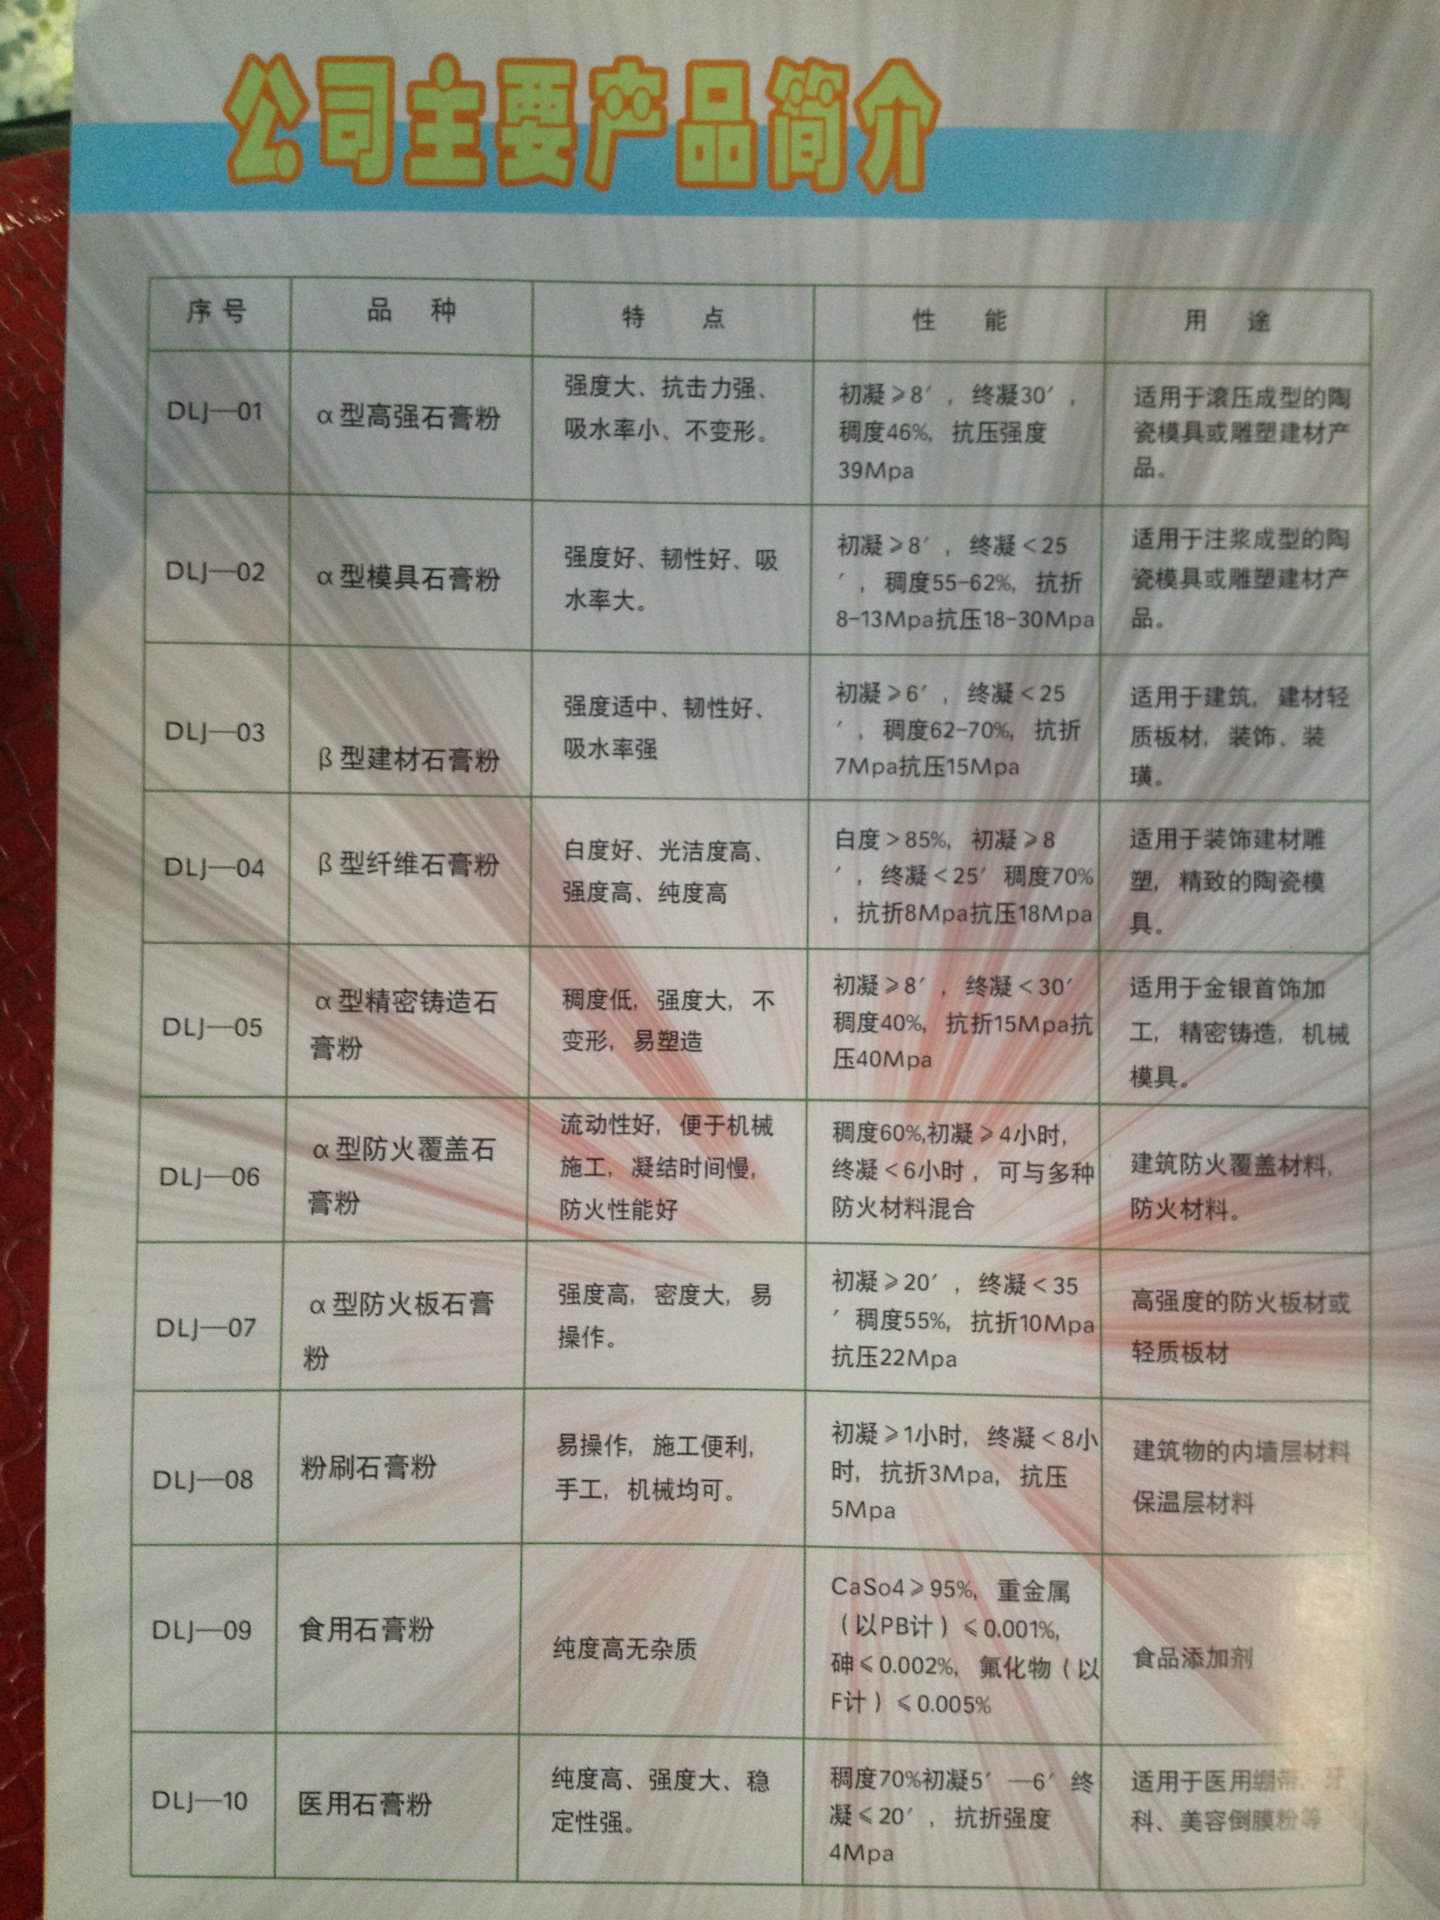 公司主要产品简介
序号 品种 特点 性能 用途
DLJ—01
α型高强石膏粉
强度大、抗击力强、
吸水率小、不变形。
初凝≥8′，终凝30′，
稠度46%，抗压强度
39Mpa
适用于滚压成型的陶
瓷模具或雕塑建材产
品。
DLJ—02
α型模具石膏粉
强度好、韧性好、吸
水率大。
初凝≥8′，终凝<25
′，稠度55-62%，抗折
8-13Mpa抗压18-30Mpa
适用于注浆成型的陶
瓷模具或雕塑建材产
品。
DLJ—03
β型建材石膏粉
强度适中、韧性好、
吸水率强
初凝≥6′，终凝<25
′，稠度62-70%，抗折
7Mpa抗压15Mpa
适用于建筑，建材轻
质板材，装饰、装
璜。
DLJ—04
β型纤维石膏粉
白度好、光洁度高、
强度高、纯度高
白度>85%，初凝≥8
′，终凝<25′ 稠度70%
，抗折8Mpa抗压18Mpa
适用于装饰建材雕
塑，精致的陶瓷模
具。
DLJ—05
α型精密铸造石
膏粉
稠度低，强度大，不
变形，易塑造
初凝≥8′，终凝<30′
稠度40%，抗折15Mpa抗
压40Mpa
适用于金银首饰加
工，精密铸造，机械
模具。
DLJ—06
α型防火覆盖石
膏粉
流动性好，便于机械
施工，凝结时间慢，
防火性能好
稠度60%,初凝≥4小时，
终凝<6小时，可与多种
防火材料混合
建筑防火覆盖材料，
防火材料。
DLJ—07
α型防火板石膏
粉
强度高，密度大，易
操作。
初凝≥20′，终凝<35
′稠度55%，抗折10Mpa
抗压22Mpa
高强度的防火板材或
轻质板材
DLJ—08
粉刷石膏粉
易操作，施工便利，
手工，机械均可。
初凝≥1小时，终凝<8小
时，抗折3Mpa，抗压
5Mpa
建筑物的内墙层材料
保温层材料
DLJ—09
食用石膏粉
纯度高无杂质
CaSo4≥95%，重金属
（以PB计）≤0.001%，
砷≤0.002%，氟化物（以
F计）≤0.005%
食品添加剂
DLJ—10
医用石膏粉
纯度高、强度大、稳
定性强。
稠度70%初凝5′—6′终
凝≤20′，抗折强度
4Mpa
适用于医用绷带，牙
科、美容倒膜粉等